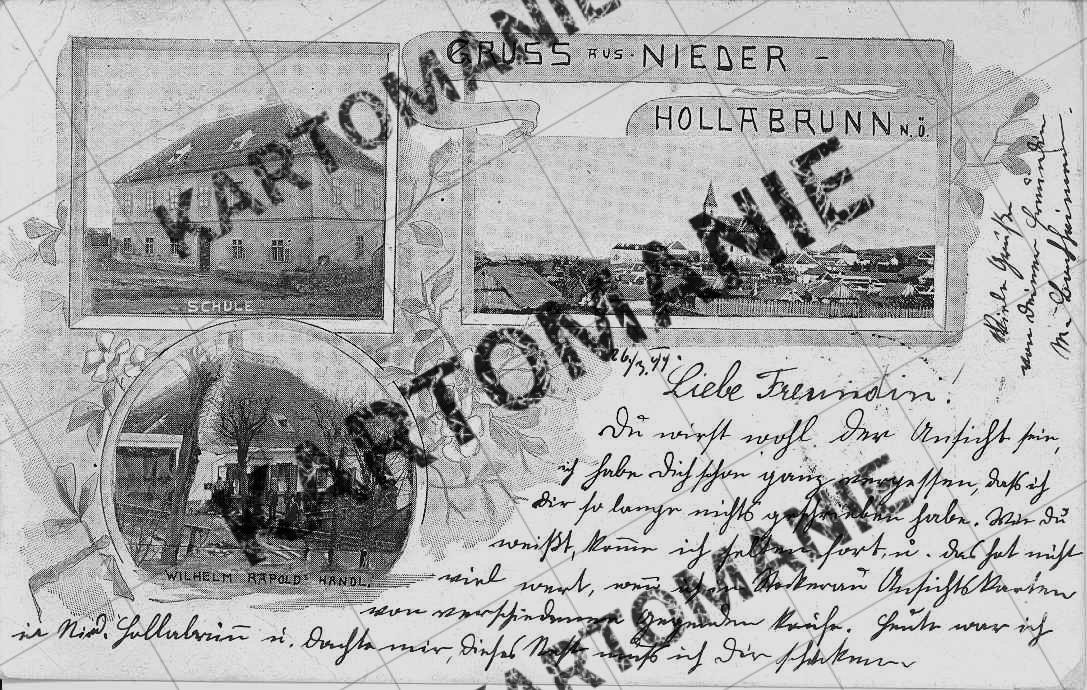 GRUSS AUS NIEDER-
HOLLABRUNN N.Ö.
SCHULE
WILHELM RAPOLD'S HANDL.
KARTOMANIE
KARTOMANIE
KARTOMANIE
Viele Grüße
von Deiner Freundin
M.
26/3.99.
Liebe Freundin!
Du wirst wohl der Ansicht sein,
ich habe Dich schon ganz vergessen, daß ich
Dir so lange nichts geschrieben habe. Wie Du
weißt, kom̅e ich selten fort, u. das hat nicht
viel wert, wen̅ ich in Stockerau Ansichtskarten
von verschiedenen Gegenden kaufe. Heute war ich
in Nied. Hollabrun̅ u. dachte mir, dieses Nest muß ich Dir schicken